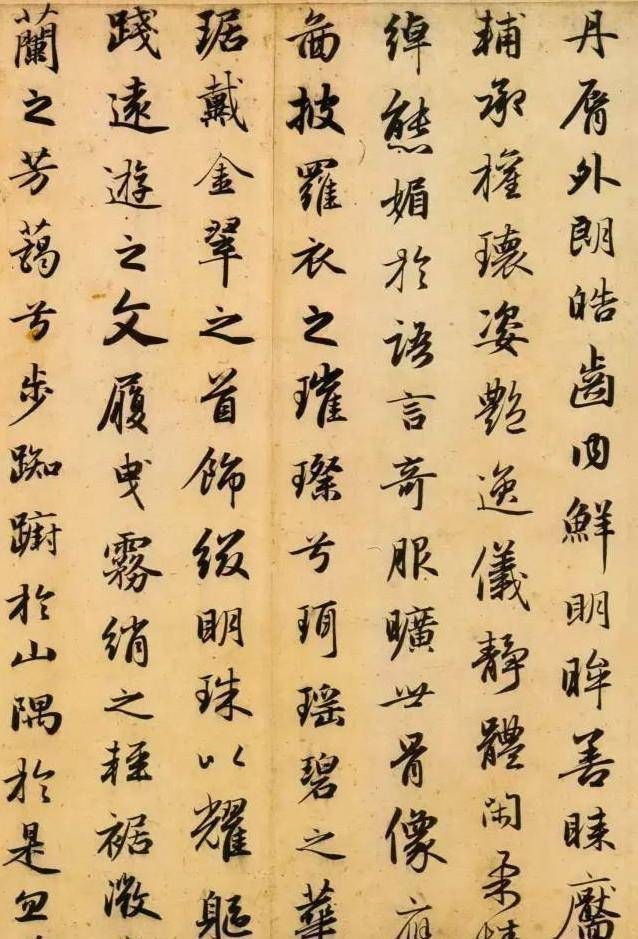 丹脣外朗皓齒內鮮明眸善睞靨
輔承權瓌姿艷逸儀靜體閑柔情
綽態媚於語言奇服曠世骨像應
圖披羅衣之璀璨兮珥瑤碧之華
琚戴金翠之首飾綴明珠以耀軀
踐遠遊之文履曳霧綃之輕裾微
蘭之芳藹兮步踟躕於山隅於是忽